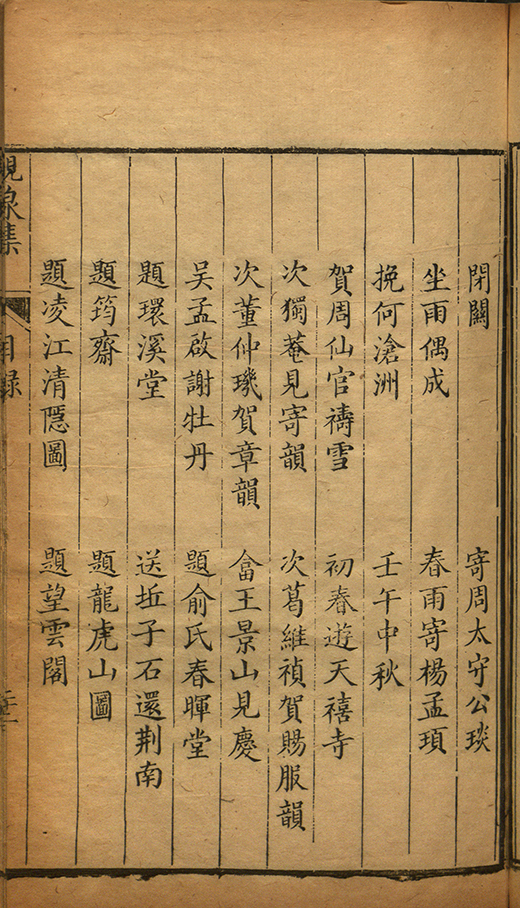 閉關 寄周太守公琰
坐雨偶成 春雨寄楊孟頊
挽何滄洲 壬午中秋
賀周仙官禱雪 初春遊天禧寺
次獨菴見寄韻 次葛維禎賀賜服韻
次董仲璣賀章韻 畣王景山見慶
吴孟啟謝牡丹 題俞氏春暉堂
題環溪堂 送坵子石還荆南
題筠齋 題龍虎山圖
題凌江清隱圖 題望雲閣
覲泉集 目録